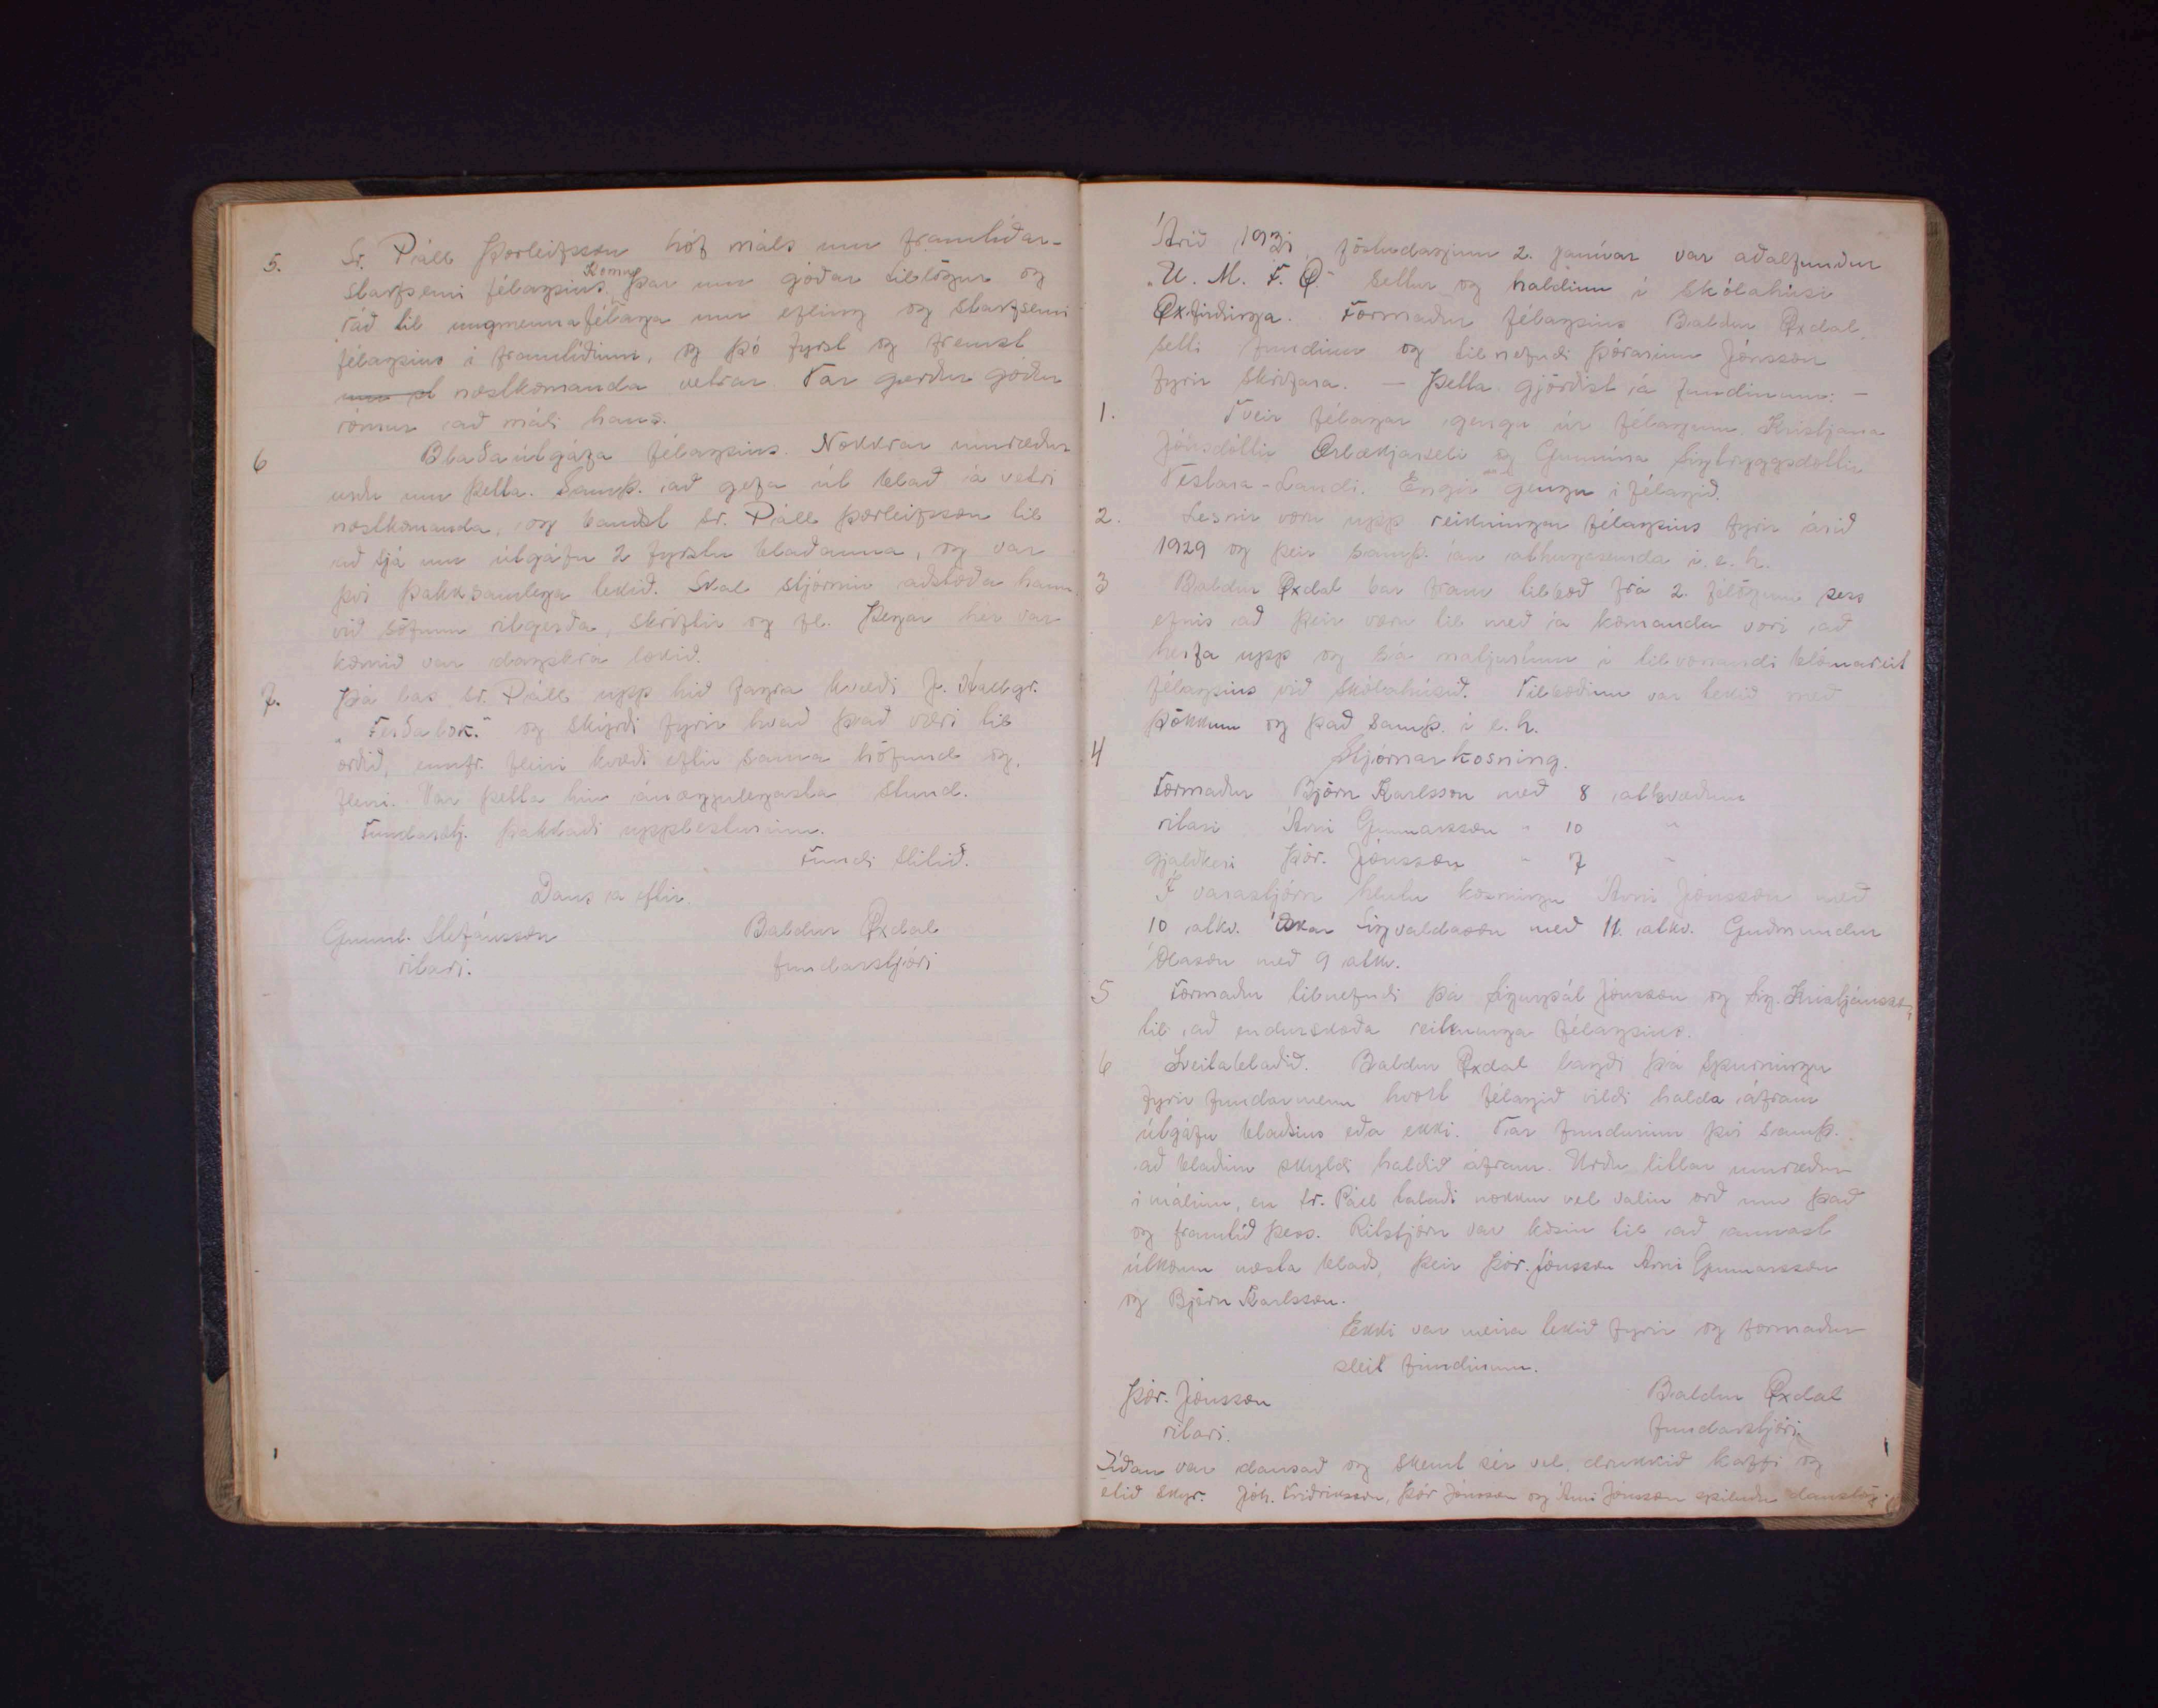 5. Sr. Páll Þorleifsson hóf máls um framtíðar-
starfsemi félagsins. Komu þar um góðar tillögur og
ráð til ungmennafélaga um efling og starfsemi
félagsins í framtíðinni, og þó fyrst og fremst
næstkomanda vetrar. Var gerður góður
rómur að máli hans.
6 Blaðaútgáfa félagsins. Nokkrar umræður
urðu um þetta. Samþ. að gefa út blað á vetri
næstkomanda, og bauðst sr. Páll Þorleifsson til
að sjá um útgáfu 2 fyrstu blaðanna, og var
því þakksamlega tekið. Skal stjórnin aðstoða hann
við söfnun ritgerða, skriftir og fl. Þegar hér var
komið var dagskrá lokið.
7. Þá las sr. Páll upp hið fagra kvæði J. Hallgr.
"Ferðalok." og skýrði fyrir hvað það væri til
orðið, ennfr. fleiri kvæði eftir sama höfund og
fleiri. Var þetta hin ánægjulegasta stund.
Fundarstj. þakkaði upplesturinn.
Fundi slitið.
Dans á eftir.
Gunnl. Stefánsson Baldur Öxdal
ritari. fundarstjóri
Árið 1931, föstudaginn 2. janúar var aðalfundur
"U. M. F. Ö." settur og haldinn í skólahúsi
Öxfirðinga. Formaður félagsins Baldur Öxdal
setti fundinn og tilnefndi Þórarinn Jónsson
fyrir skrifara. — Þetta gjörðist á fundinum: —
1. Tveir félagar gengu úr félaginu, Kristjana
Jónsdóttir Ærlækjarseli og Gunnína Sigtryggsdóttir
Vestara-Landi. Engir gengu í félagið.
2. Lesnir voru upp reikningar félagsins fyrir árið
1929 og þeir samþ. án athugasemda í. e. h.
3 Baldur Öxdal bar fram tilboð frá 2. félögum þess
efnis að þeir væru til með á komanda vori að
herfa upp og sá matjurtum í tilvonandi blómareit
félagsins við skólahúsið. Tilboðinu var tekið með
þökkum og það samþ. í e. h.
4 Stjórnarkosning.
Formaður Björn Karlsson með 8 atkvæðum
ritari Árni Gunnarsson " 10 "
gjaldkeri Þór. Jónsson " 7 "
Í varastjórn hlutu kosningu Árni Jónsson með
10 atkv. Óskar Sigvaldason með 11. atkv. Guðmundur
Ólason með 9 atkv.
5 Formaður tilnefndi þá Sigurpál Jónsson og Sig. Kristjánsson
til að endurskoða reikninga félagsins.
6 Sveitablaðið. Baldur Öxdal lagði þá spurningu
fyrir fundarmenn hvort félagið vildi halda áfram
útgáfu blaðsins eða ekki. Var fundurinn því samþ.
að blaðinu skyldi haldið áfram. Urðu litlar umræður
í málinu, en sr. Páll talaði nokkur vel valin orð um það
og framtíð þess. Ritstjórn var kosin til að annast
útkomu næsta blaðs, þeir Þór. Jónsson Árni Gunnarsson
og Björn Karlsson.
Ekki var meira tekið fyrir og formaður
sleit fundinum.
Þór. Jónsson Baldur Öxdal
ritari. fundarstjóri.
Síðan var dansað og skemt sér vel, drukkið kaffi og
etið skyr. Jóh. Friðriksson, Þór Jónsson og Árni Jónsson spiluðu danslög.